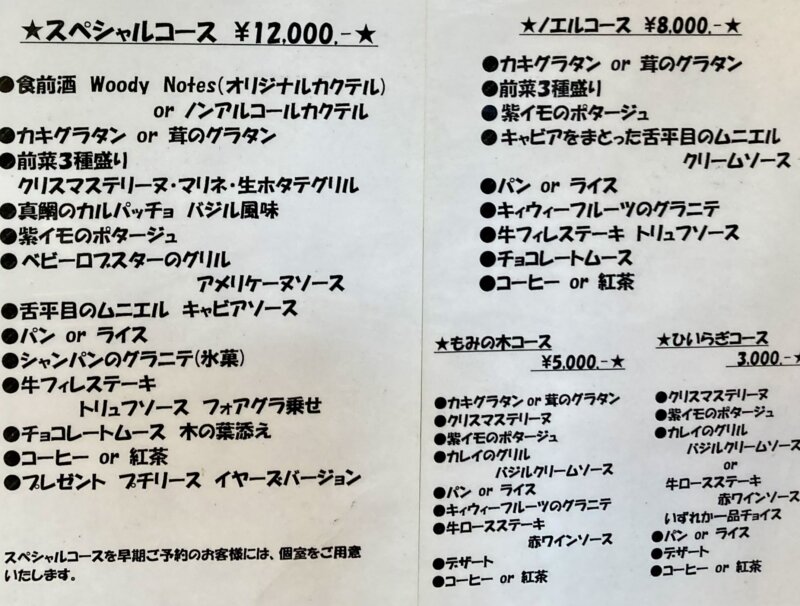 ★スペシャルコース ￥12,000.-★
●食前酒 Woody Notes(オリジナルカクテル)
or ノンアルコールカクテル
●カキグラタン or 茸のグラタン
●前菜3種盛り
クリスマステリーヌ・マリネ・生ホタテグリル
●真鯛のカルパッチョ バジル風味
●紫イモのポタージュ
●ベビーロブスターのグリル
アメリケーヌソース
●舌平目のムニエル キャビアソース
●パン or ライス
●シャンパンのグラニテ(氷菓)
●牛フィレステーキ
トリュフソース フォアグラ乗せ
●チョコレートムース 木の葉添え
●コーヒー or 紅茶
●プレゼント プチリース イヤーズバージョン
スペシャルコースを早期ご予約のお客様には、個室をご用意
いたします。
★ノエルコース ￥8,000.-★
●カキグラタン or 茸のグラタン
●前菜3種盛り
●紫イモのポタージュ
●キャビアをまとった舌平目のムニエル
クリームソース
●パン or ライス
●キィウィーフルーツのグラニテ
●牛フィレステーキ トリュフソース
●チョコレートムース
●コーヒー or 紅茶
★もみの木コース
￥5,000.-★
●カキグラタン or 茸のグラタン
●クリスマステリーヌ
●紫イモのポタージュ
●カレイのグリル
バジルクリームソース
●パン or ライス
●キィウィーフルーツのグラニテ
●牛ロースステーキ
赤ワインソース
●デザート
●コーヒー or 紅茶
★ひいらぎコース
3,000.-★
●クリスマステリーヌ
●紫イモのポタージュ
●カレイのグリル
バジルクリームソース
or
牛ロースステーキ
赤ワインソース
いずれか一品チョイス
●パン or ライス
●デザート
●コーヒー or 紅茶